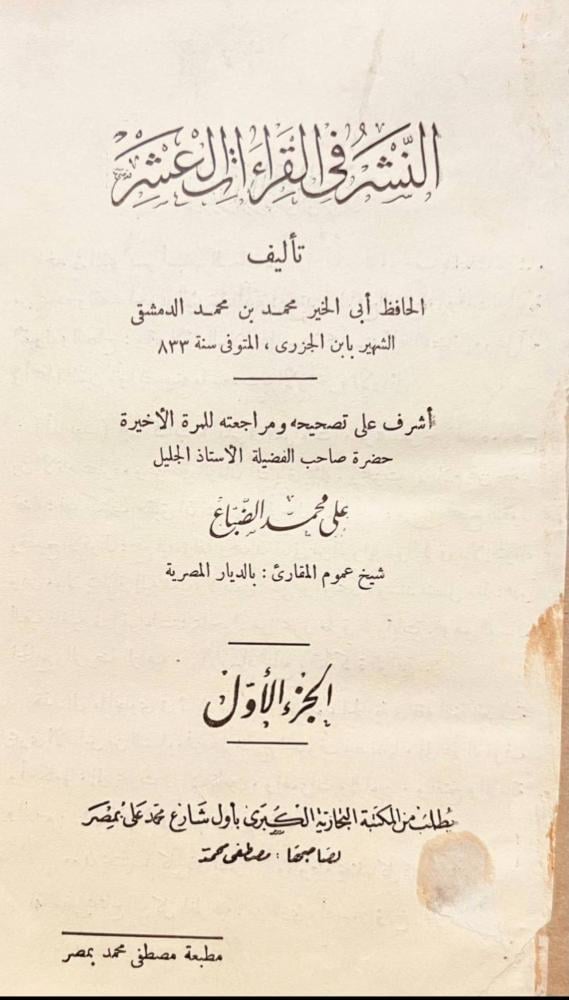 النَّشْرُ فِي القِرَاءَاتِ العَشْرِ
تأليف
الحافظ أبى الخير محمد بن محمد الدمشقى
الشهير بابن الجزرى ، المتوفى سنة ٨٣٣
أشرف على تصحيحه ومراجعته للمرة الأخيرة
حضرة صاحب الفضيلة الأستاذ الجليل
على محمد الضبّاع
شيخ عموم المقارئ : بالديار المصرية
الجزء الأوّل
يطلب من المكتبة التجارية الكبرى بأول شارع محمد على بمصر
لصاحبها : مصطفى محمد
مطبعة مصطفى محمد بمصر